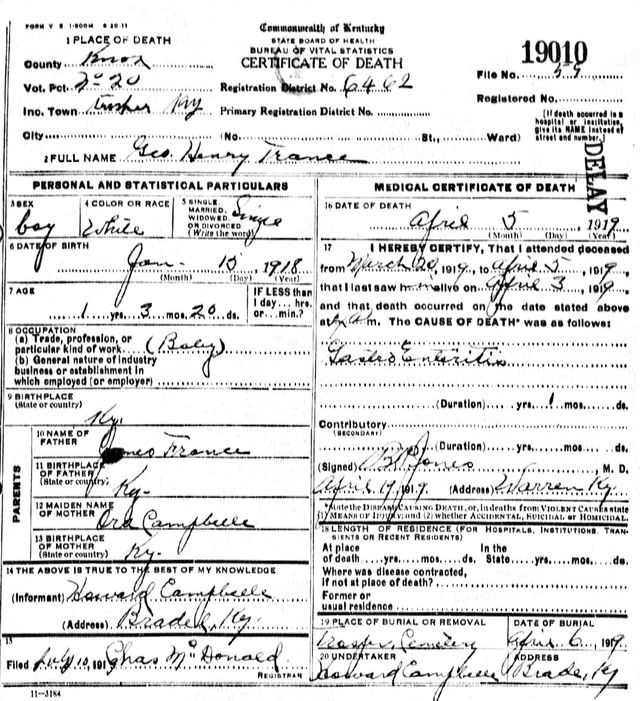 FORM V S 1-500M 6 20 11
Commonwealth of Kentucky
STATE BOARD OF HEALTH
BUREAU OF VITAL STATISTICS
CERTIFICATE OF DEATH
19010
1 PLACE OF DEATH
County Knox
Vot. Pct. No 20
Inc. Town Trosper Ky
City (No. St., Ward)
Registration District No. 6462
Primary Registration District No.
File No. 55
Registered No.
(If death occurred in a hospital or institution, give its NAME instead of street and number.)
2 FULL NAME Geo. Henry France
DELAY
PERSONAL AND STATISTICAL PARTICULARS
3 SEX boy
4 COLOR OR RACE White
5 SINGLE, MARRIED, WIDOWED, OR DIVORCED (Write the word) Single
6 DATE OF BIRTH
Jan- 15, 1918
(Month) (Day) (Year)
7 AGE
1 yrs. 3 mos. 20 ds.
IF LESS than 1 day...hrs. or...min.?
8 OCCUPATION
(a) Trade, profession, or particular kind of work (Baby)
(b) General nature of industry business or establishment in which employed (or employer)
9 BIRTHPLACE
(State or country)
Ky.
PARENTS
10 NAME OF FATHER France
11 BIRTHPLACE OF FATHER (State or country) Ky-
12 MAIDEN NAME OF MOTHER Ora Campbelle
13 BIRTHPLACE OF MOTHER (State or country) Ky-
14 THE ABOVE IS TRUE TO THE BEST OF MY KNOWLEDGE
(Informant) Howard Campbelle
(Address) Ky.
15
Filed July 10, 1919 Chas McDonald
REGISTRAR
11-3184
MEDICAL CERTIFICATE OF DEATH
16 DATE OF DEATH
April 5, 1919
(Month) (Day) (Year)
17 I HEREBY CERTIFY, That I attended deceased
from March 20, 1919, to April 5, 1919,
that I last saw him alive on April 3, 1919,
and that death occurred on the date stated above
at m. The CAUSE OF DEATH* was as follows:
Gastro Enteritis
(Duration) yrs. 1 mos. ds.
Contributory
(SECONDARY)
(Duration) yrs. mos. ds.
(Signed) Jones M. D.
April 17, 1919. (Address) Warren Ky.
*State the DISEASE CAUSING DEATH, or, in deaths from VIOLENT CAUSES state (1) MEANS OF INJURY and (2) whether ACCIDENTAL, SUICIDAL or HOMICIDAL.
18 LENGTH OF RESIDENCE (FOR HOSPITALS, INSTITUTIONS, TRANSIENTS OR RECENT RESIDENTS)
At place of death yrs. mos. ds. In the State yrs. mos. ds.
Where was disease contracted, if not at place of death?
Former or usual residence
19 PLACE OF BURIAL OR REMOVAL
Trosper, Cemetery
DATE OF BURIAL
April 6, 1919
20 UNDERTAKER
Howard Campbelle
ADDRESS
Ky